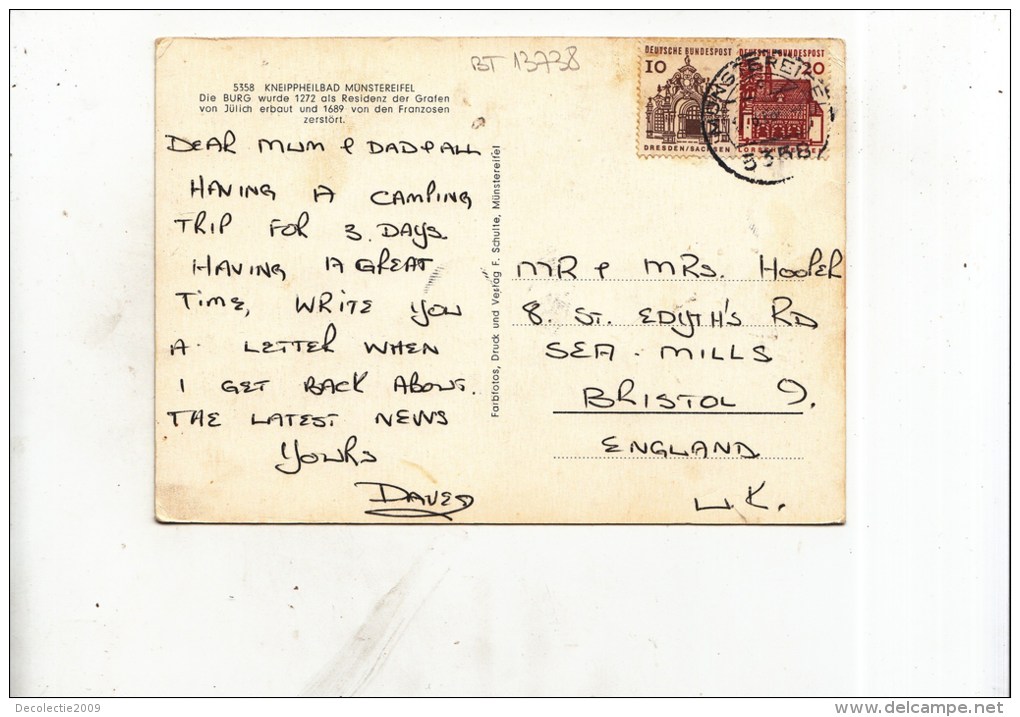 BT 13738
5358 KNEIPPHEILBAD MÜNSTEREIFEL
Die BURG wurde 1272 als Residenz der Grafen
von Jülich erbaut und 1689 von den Franzosen
zerstört.
DEAR MUM & DAD & ALL
HAVING A CAMPING
TRIP FOR 3. DAYS.
HAVING A GREAT
TIME, WRITE YOU
A LETTER WHEN
I GET BACK ABOUT.
THE LATEST NEWS
YOURS
DAVE
Farbfotos, Druck und Verlag F. Schulte, Münstereifel
DEUTSCHE BUNDESPOST
10
DRESDEN/SACHSEN
DEUTSCHE BUNDESPOST
20
MÜNSTEREIFEL
MR & MRS. HOOPER
8. ST. EDYTH'S RD
SEA. MILLS
BRISTOL 9.
ENGLAND
U.K.
Decolectie2009
www.delcampe.net